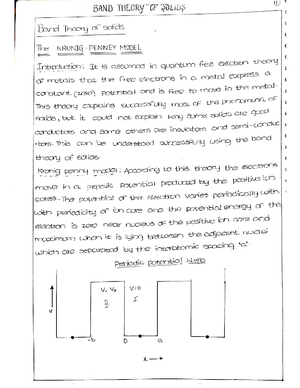 BAND THEORY OF SOLIDS
Band Theory of solids
The KRONIG-PENNEY MODEL
Introduction: It is assumed in quantum free electron theory
of metals that the free electrons in a metal express a
constant (zero) potential and is free to move in the metal.
This theory explains successfully most of the phenomena of
solids, but it could not explain why some solids are good
conductors and some others are insulators and semi-conduc
-tors. This can be understood successfully using the band
theory of solids.
Kronig penny model: According to this theory the electrons
move in a periodic potential produced by the positive ion
cores. The potential of the electron varies periodically with
with periodicity of ion core and the potential energy of the
electron is zero near nucleus of the positive ion core and
maximum when it is lying between the adjacent nuclei
which are separated by the interatomic spacing 'a'.
Periodic potential steps
V=V₀ V=0
V
-b 0 a
x →